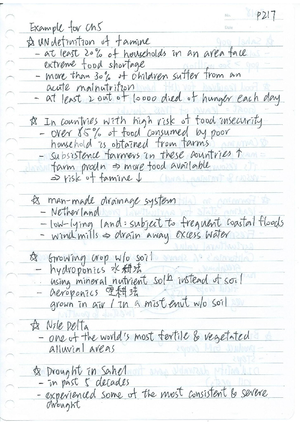 P217
Example for Ch5
☆ UN definition of famine
- at least 20% of households in an area face
extreme food shortage
- more than 30% of children suffer from an
acute malnutrition
- at least 2 out of 10000 died of hunger each day
☆ In countries with high risk of food insecurity
- over 85% of food consumed by poor
household is obtained from farms
- Subsistence farmers in these countries ↑
farm prodn ⇒ more food available
⇒ risk of famine ↓
☆ man-made drainage system
- Netherland
- low-lying land: subject to frequent coastal floods
- windmills ⇒ drain away excess water
☆ Growing crop w/o soil
- hydroponics 水耕法
using mineral nutrient soln instead of soil
- aeroponics 氣耕法
grown in air / in a mist envt w/o soil
☆ Nile Delta
- one of the world's most fertile & vegetated
alluvial areas
☆ Drought in Sahel
- in past 5 decades
- experienced some of the most consistent & severe
drought